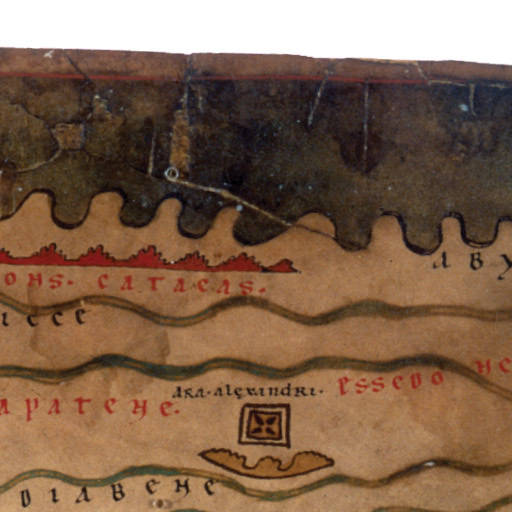 ABY
ONS. CATACAS.
ICCE
ARA·ALEXANDRI· ESSEDO NE
APATENE.
DIABENE